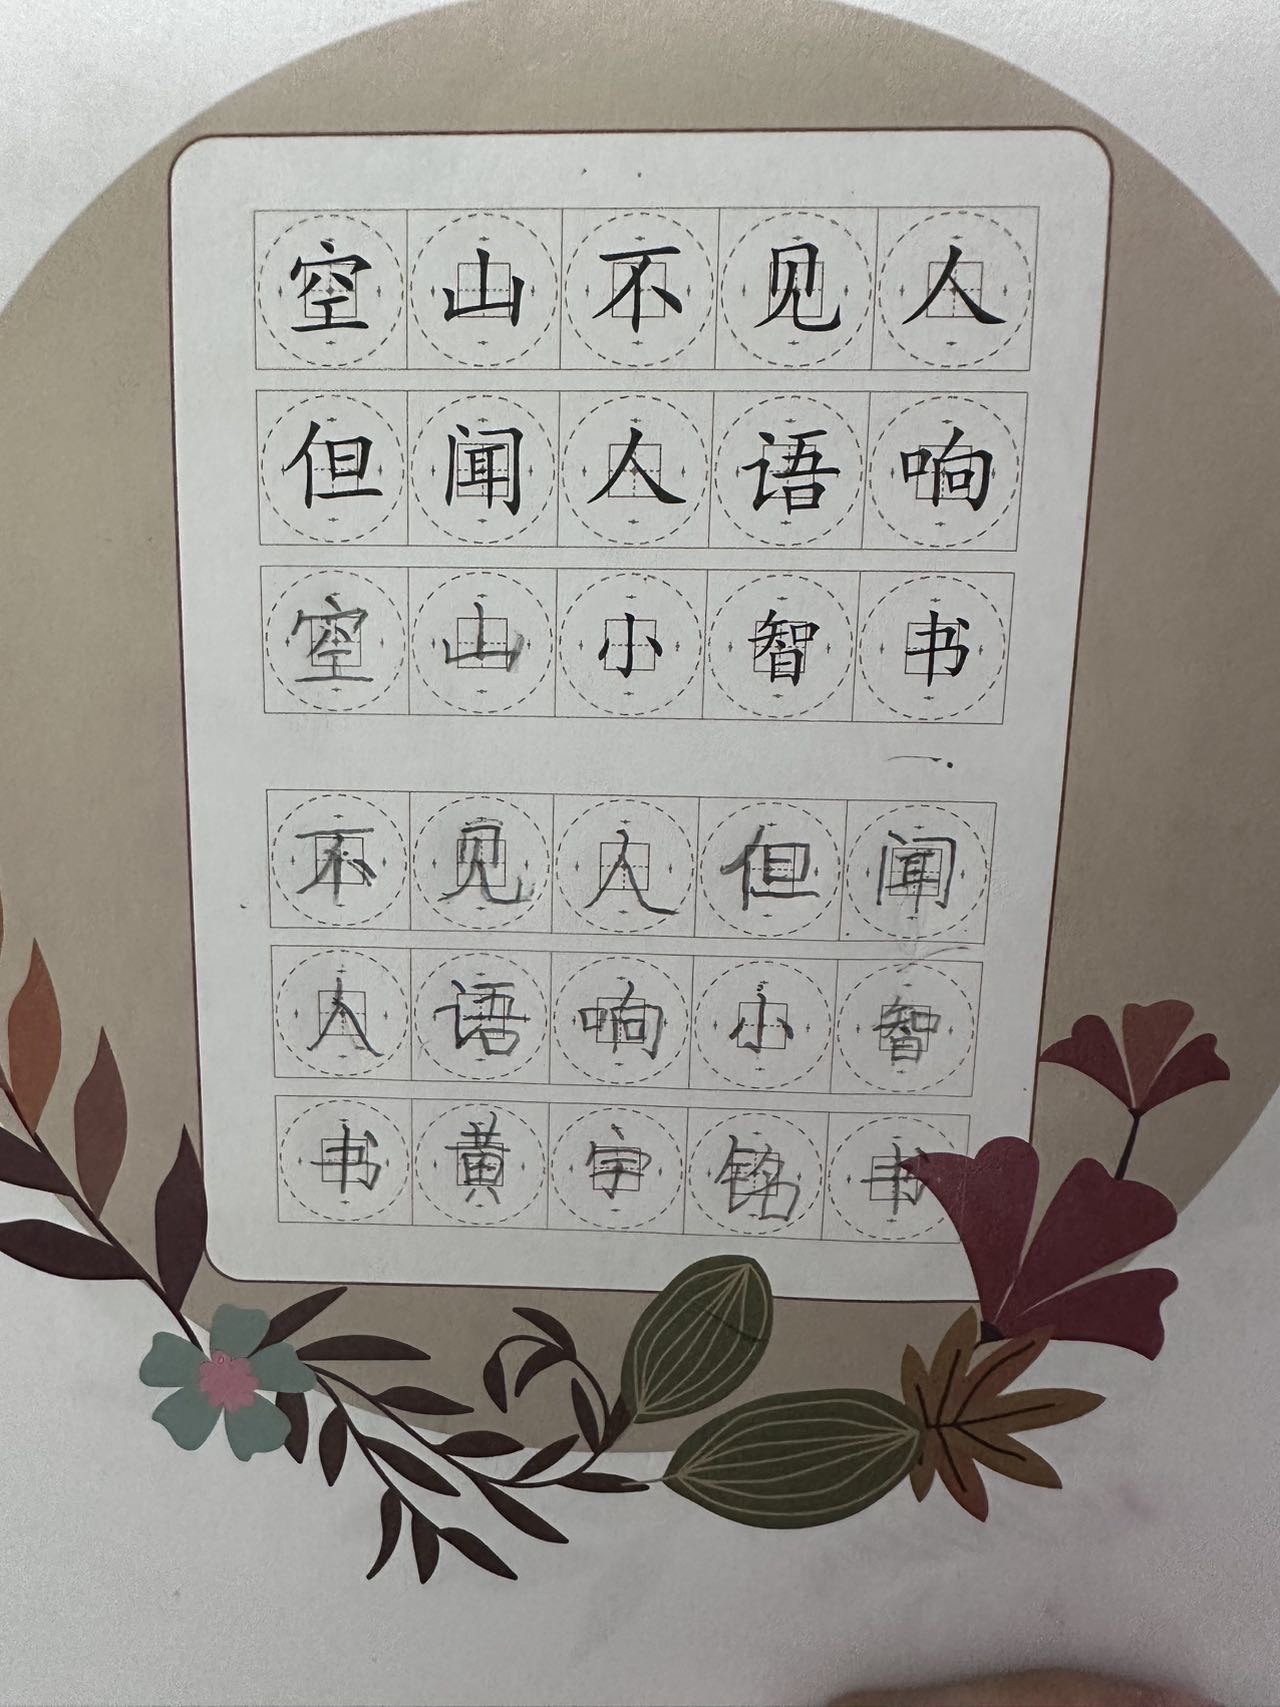 空山不见人
但闻人语响
空山小智书
不见人但闻
人语响小智
书黄宇铭书